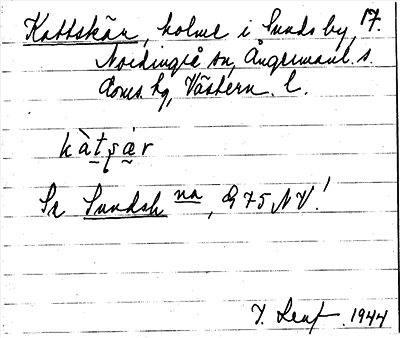 Kattskär, holme i Sunds by, 17.
Nordingrå sn, Ångermanl. s.
doms. hg, Västern. l.
kàtṣạr
Se Sundsh na, 975 NV!
1944